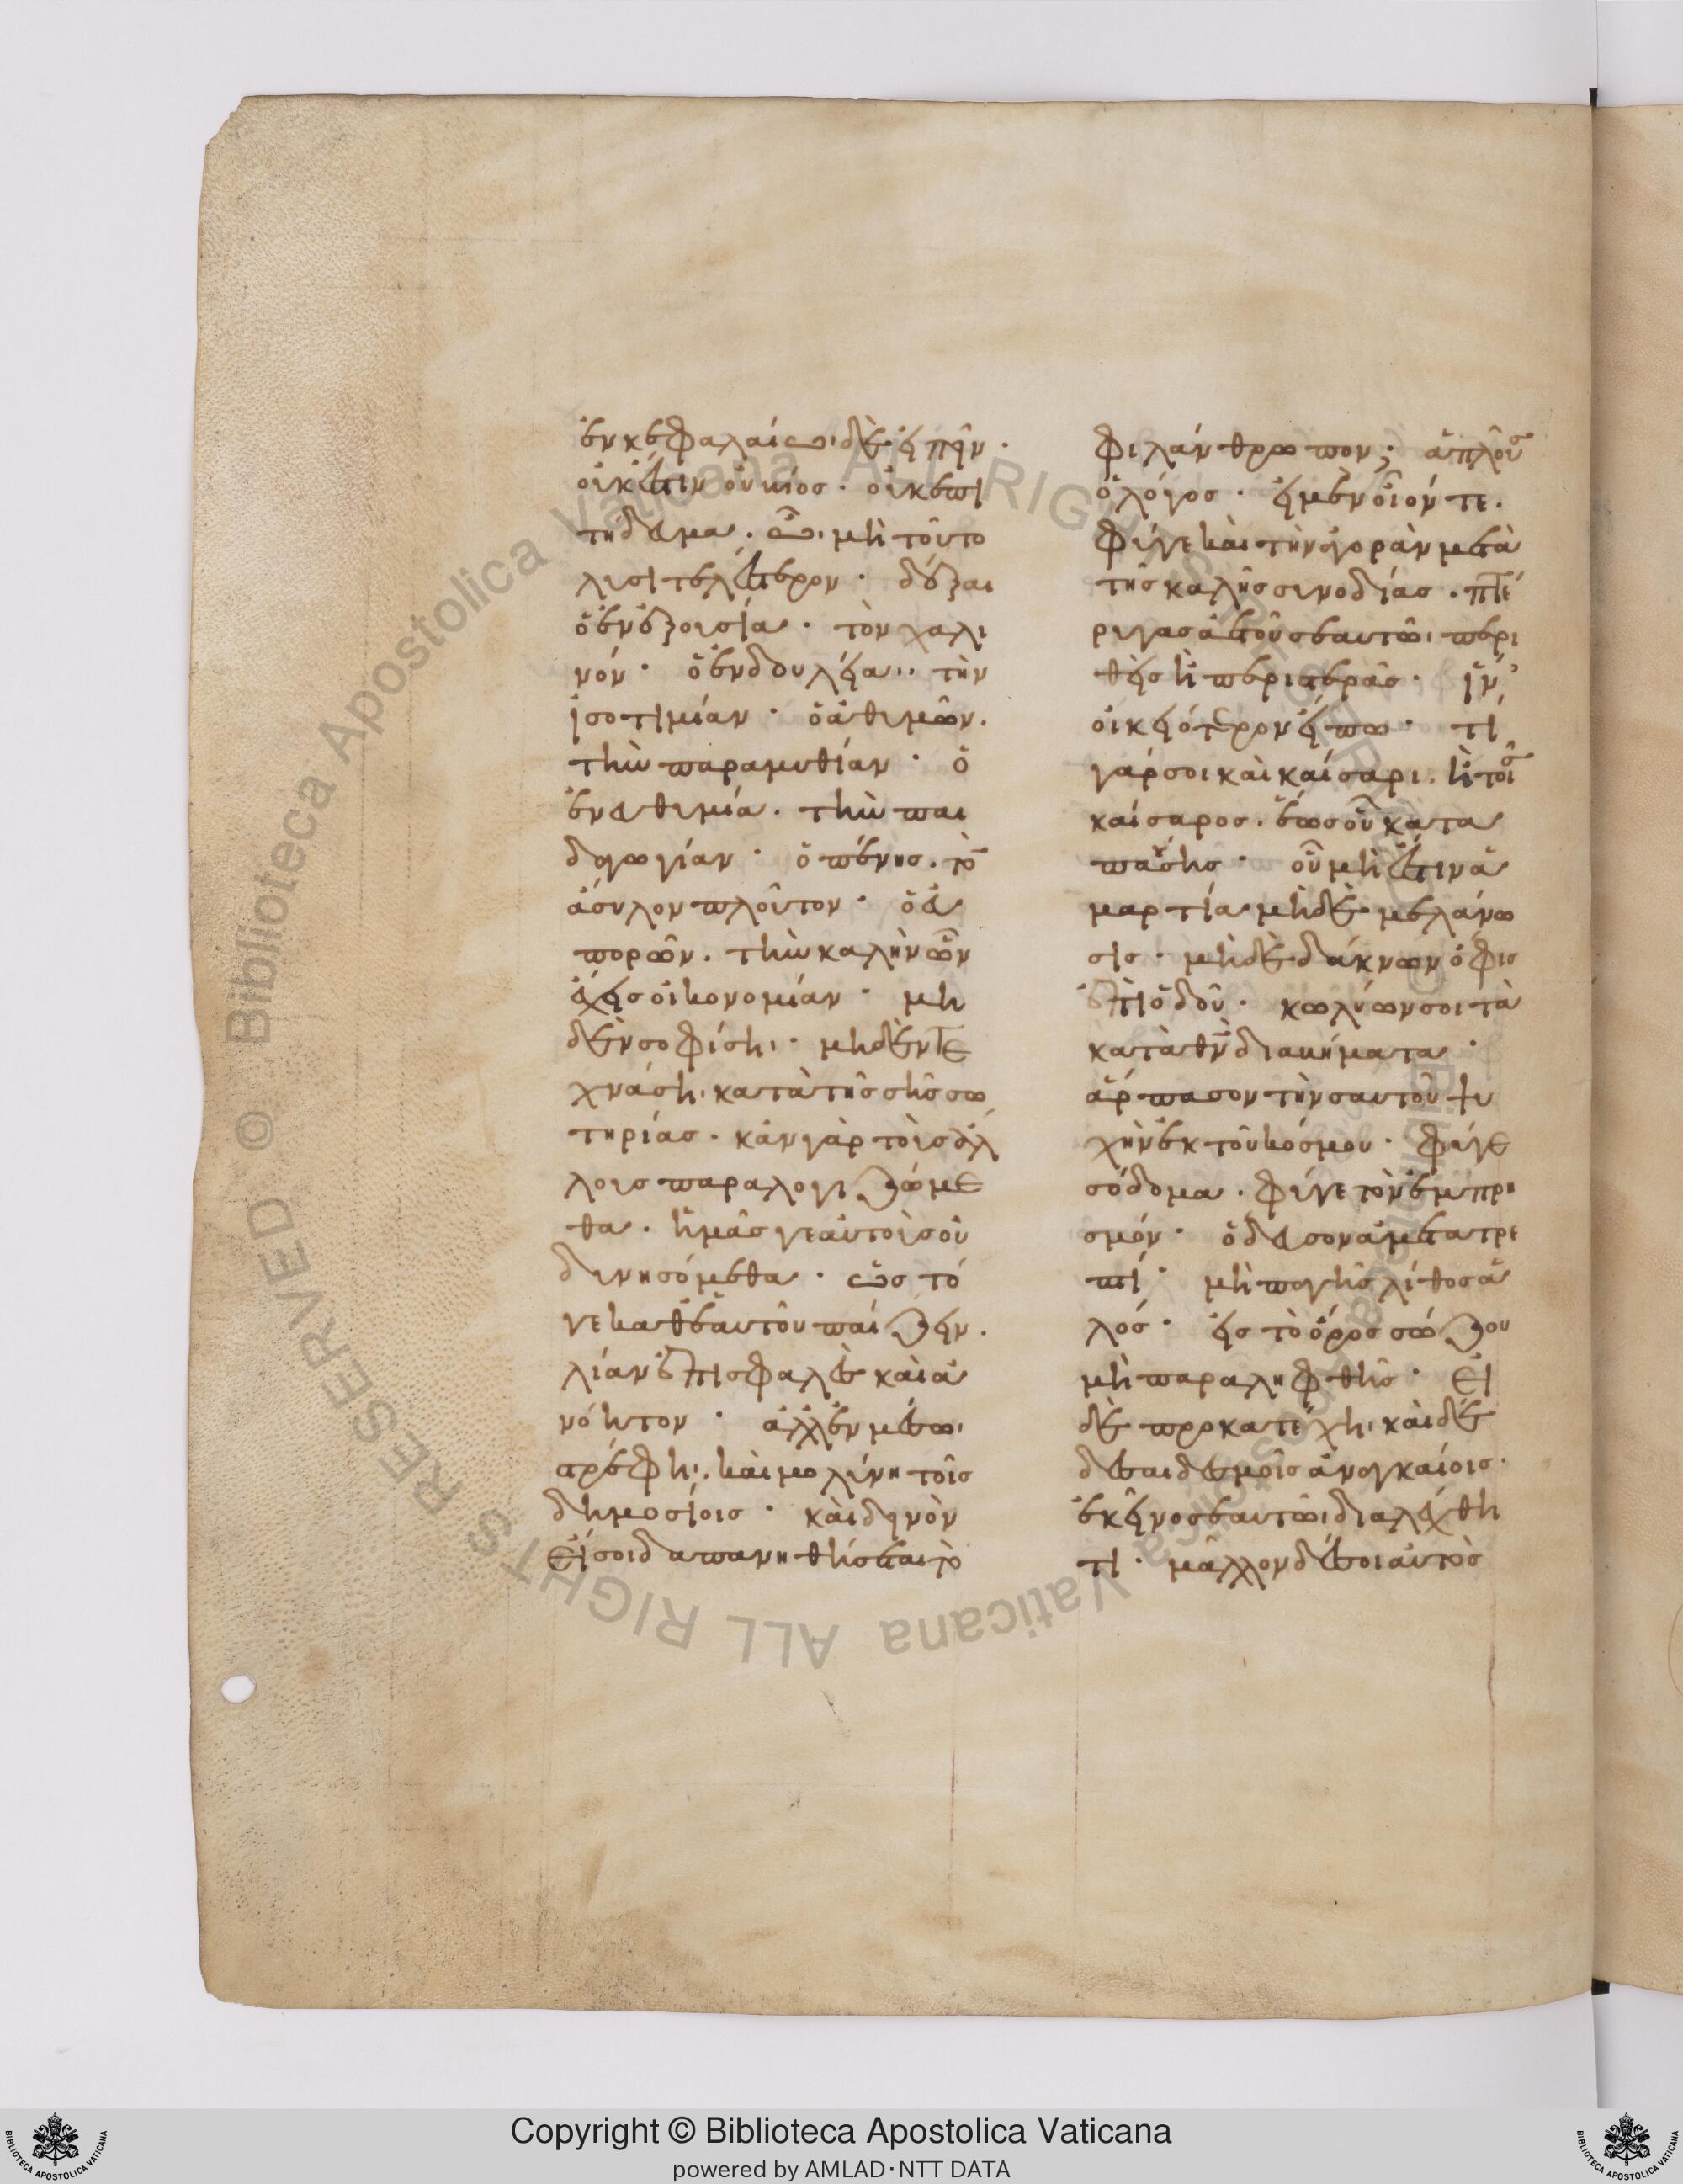 ἐν κεφαλαίω· δὲ εἰπεῖν·
οὐκ ἔστιν οὐ βίος· οὐκ ἐπι
τήδευμα· ὧ· μὴ τοῦτο
λυσιτελέστερον· δέξαι
ὁ ἐν ἐξουσία· τὸν χαλι
νόν· ὁ ἐν δουλεία·· τὴν
ἰσοτιμίαν· ὁ ἀθυμῶν·
τὴν παραμυθίαν· ὁ
ἐν εὐθυμία· τὴν παι
δαγωγίαν· ὁ πένης· τὸ
ἄσυλον πλοῦτον· ὁ εὐ
πορῶν· τὴν καλὴν ὧν
ἔχεις οἰκονομίαν· μη
δὲν σοφίση·· μηδὲν τε
χνάση· κατὰ τῆς σῆς σω
τηρίας· κἂν γὰρ τοὺς ἄλ
λους παραλογιζώμε
θα· ἡμᾶς γε αὐτοὺς οὐ
δυνησόμεθα· ὡς τό
γε καθ' ἑαυτοῦ παίζειν·
λίαν ἐπισφαλὲς καὶ ἀ
νόητον· ἀλλ' ἐν μέσω·
στρέφη·· καὶ μολύνη τοῖς
δημοσίοις· καὶ δεινὸν
εἴ σοι δαπανηθήσεται τὸ
φιλάνθρωπον; ἁπλοῦς
ὁ λόγος· εἰ μὲν οἷόν τε·
φύγε καὶ τὴν ἀγορὰν μετὰ
τῆς καλῆς συνοδίας· πτέ
ρυγας ἀετοῦ σεαυτῶ· περι
θεὶς ἢ περιστερᾶς· ἵν'
οἰκειότερον εἴπω· τί
γάρ σοι καὶ καίσαρι· ἢ τοῖς
καίσαρος· ἕως οὗ κατα
παύσης· οὗ μὴ ἔστιν ἁ
μαρτία μηδὲ μελάνω
σις· μηδὲ δάκνων ὄφις
ἐπὶ ὁδοῦ· κωλύων σοι τὰ
κατὰ θν διαβήματα·
ἅρπασον τὴν σαυτοῦ ψυ
χὴν ἐκ τοῦ κόσμου· φύγε
σόδομα· φύγε τὸν ἐμπρη
σμόν· ὅδευσον ἀμεταστρε
πτί· μὴ παγῆς λίθος ἁ
λός· εἰς τὸ ὄρος σώζου
μὴ παραληφθῆς· εἰ
δὲ προκατέχη· καὶ δέ
δεσαι δεσμοῖς ἀναγκαίοις·
ἐκεῖνο σεαυτῶ διαλέχθη
τι· μᾶλλον δέ σοι αὐτὸς
Copyright © Biblioteca Apostolica Vaticana
powered by AMLAD·NTT DATA